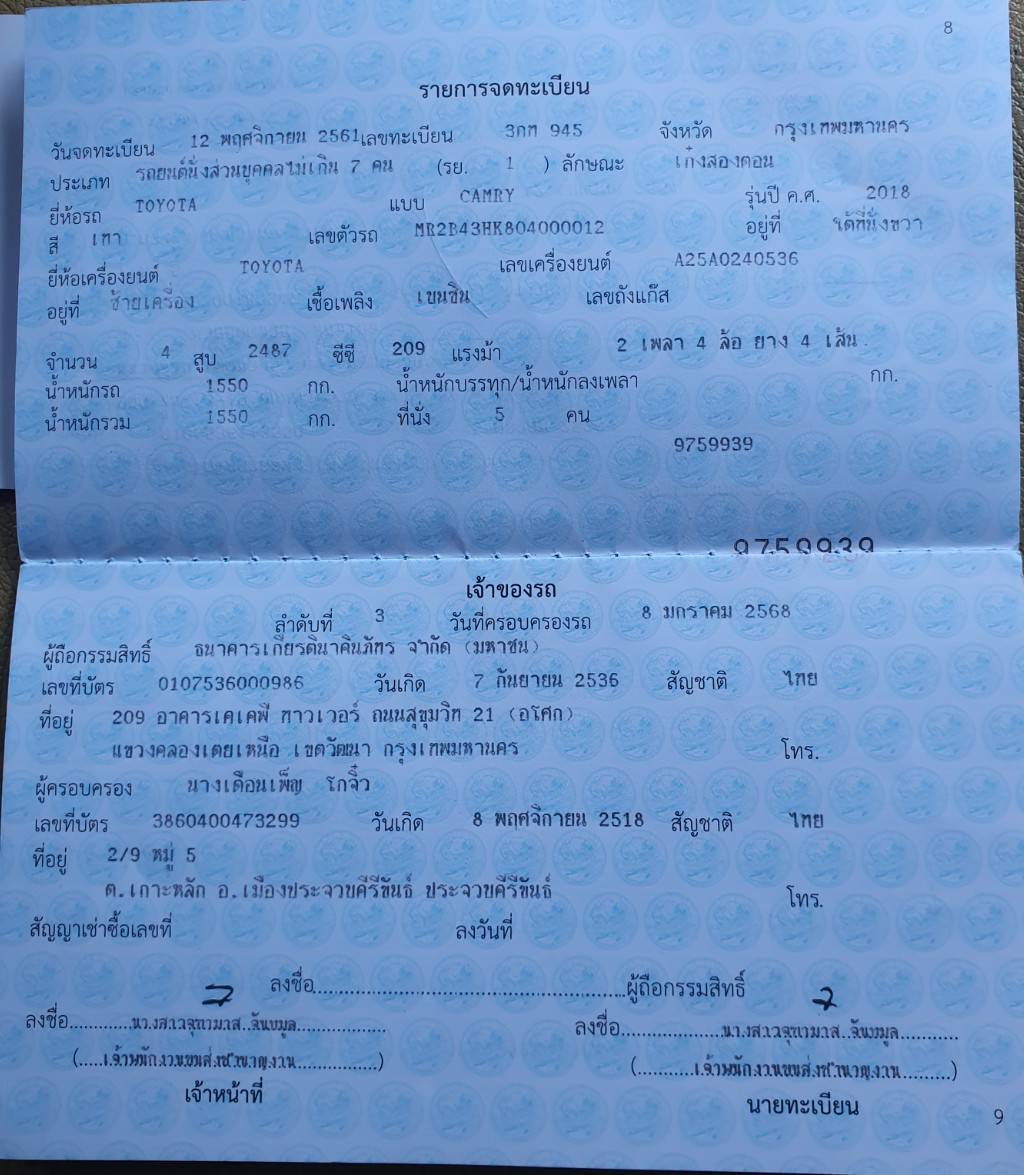 8
รายการจดทะเบียน
วันจดทะเบียน 12 พฤศจิกายน 2561 เลขทะเบียน 3กท 945 จังหวัด กรุงเทพมหานคร
ประเภท รถยนต์นั่งส่วนบุคคลไม่เกิน 7 คน (รย. 1 ) ลักษณะ เก๋งสองตอน
ยี่ห้อรถ TOYOTA แบบ CAMRY รุ่นปี ค.ศ. 2018
สี เทา เลขตัวรถ MR2B43HK804000012 อยู่ที่ ใต้ที่นั่งขวา
ยี่ห้อเครื่องยนต์ TOYOTA เลขเครื่องยนต์ A25A0240536
อยู่ที่ ซ้ายเครื่อง เชื้อเพลิง เบนซิน เลขถังแก๊ส
จำนวน 4 สูบ 2487 ซีซี 209 แรงม้า 2 เพลา 4 ล้อ ยาง 4 เส้น.
น้ำหนักรถ 1550 กก. น้ำหนักบรรทุก/น้ำหนักลงเพลา กก.
น้ำหนักรวม 1550 กก. ที่นั่ง 5 คน
9759939
9759939
เจ้าของรถ
ลำดับที่ 3 วันที่ครอบครองรถ 8 มกราคม 2568
ผู้ถือกรรมสิทธิ์ ธนาคารเกียรตินาคินภัทร จำกัด (มหาชน)
เลขที่บัตร 0107536000986 วันเกิด 7 กันยายน 2536 สัญชาติ ไทย
ที่อยู่ 209 อาคารเคเคพี ทาวเวอร์ ถนนสุขุมวิท 21 (อโศก)
แขวงคลองเตยเหนือ เขตวัฒนา กรุงเทพมหานคร โทร.
ผู้ครอบครอง นางเดือนเพ็ญ โกจิ๋ว
เลขที่บัตร 3860400473299 วันเกิด 8 พฤศจิกายน 2518 สัญชาติ ไทย
ที่อยู่ 2/9 หมู่ 5
ต.เกาะหลัก อ.เมืองประจวบคีรีขันธ์ ประจวบคีรีขันธ์ โทร.
สัญญาเช่าซื้อเลขที่ ลงวันที่
ลงชื่อ..........ผู้ถือกรรมสิทธิ์
ลงชื่อ..........นางสาวจุฑามาส..ฉันบมูล.......... ลงชื่อ..........นางสาวจุฑามาส..ฉันบมูล..........
(.....เจ้าพนักงานขนส่งชำนาญงาน..........) (..........เจ้าพนักงานขนส่งชำนาญงาน..........)
เจ้าหน้าที่ นายทะเบียน
9